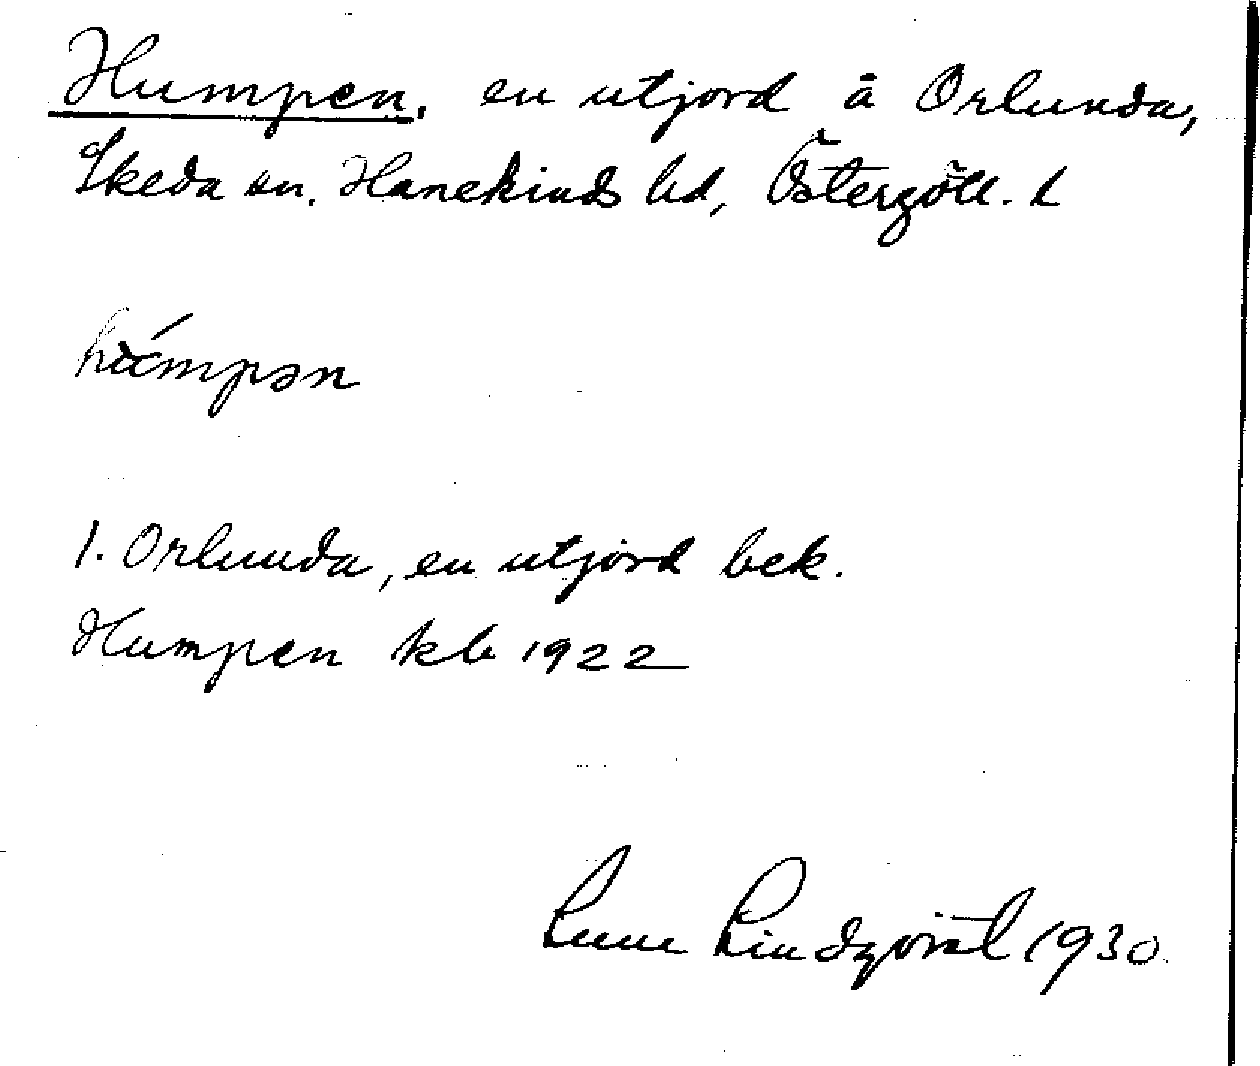 Humpen, en utjord å Orlunda,
Skeda sn. Hanekinds hd, Östergötl. l
hu̇́mpən
1. Orlunda, en utjord bek.
Humpen kb 1922
Lindqvist 1930